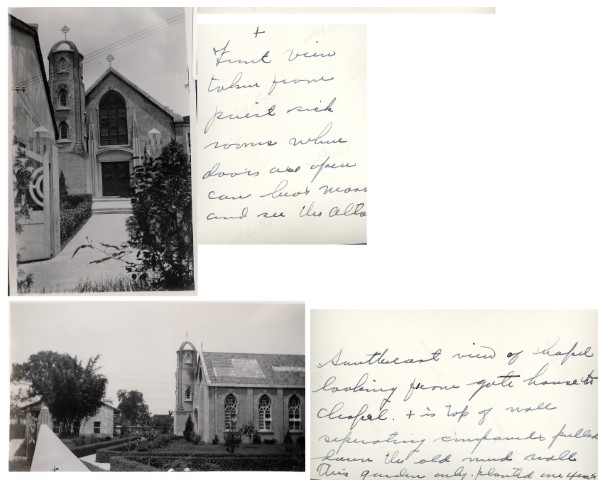 +
Front view
taken from
priest sick
rooms when
doors are open
can hear mass
and see the Alta
Southeast view of chapel
looking from gate house to
Chapel. + is top of wall
seperating compounds pulled
down the old mud walls
This garden only planted one year